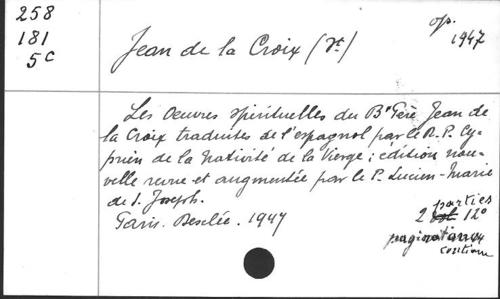 258
181
5c
Jean de la Croix (St)
op.
1947
Les Oeuvres spirituelles du Bx Père Jean de
la Croix traduites de l'espagnol par le R. P. Cy-
prien de la Nativité de la Vierge ; édition nou-
velle revue et augmentée par le P. Lucien-Marie
de S. Joseph.
Paris. Desclée. 1947
parties
2 vol. 12°
pagination
continue